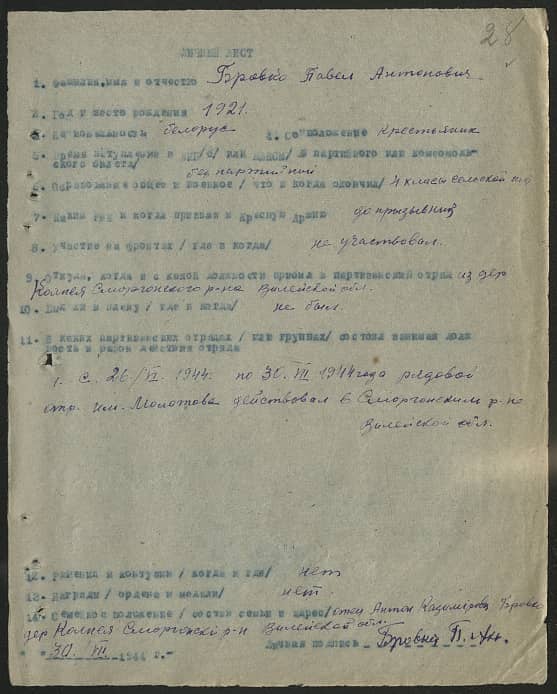 28
ЛИЧНЫЙ ЛИСТ
1. Фамилия, имя и отчество Бровко Павел Антонович
2. Год и место рождения 1921.
3. Национальность белорус 4. Соцположение Крестьянин
5. Время вступления в ВКП/б/ или ВЛКСМ/ № партийного или комсомоль-
ского билета/ беспартийный
6. Образование общее и военное / что и когда окончил/ 4 класы сельской
7. Каким РВК и когда призван в Красную Армию до призывник
8. Участие на фронтах / где и когда/ не участвовал.
9. Откуда, когда и с какой должности прибыл в партизанский отряд из дер
Сморгонского р-на Вилейской обл.
10. Был ли в плену / где и когда/ не был.
11. В каких партизанских отрядах / или группах/ состоял занимая долж
ность и район действия отряда
1. С. 26/VI. 1944. по 30. VII 1944 года рядовой
отр. им. Молотова действовал в Сморгонским р-не
Вилейской обл.
12. Ранения и контузии / когда и где/ нет
13. Награды / ордена и медали/ нет.
14. Семейное положение / состав семьи и адрес/ отец Антон Бровко
дер Сморгонский р-н Вилейской обл.
" 30. VII 1944 г.- Личная подпись Бровка П. Ан.